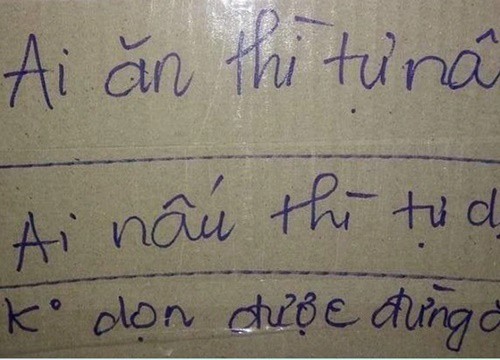 Ai ăn thì tự nâ
Ai nấu thì tự d
K° dọn được đừng